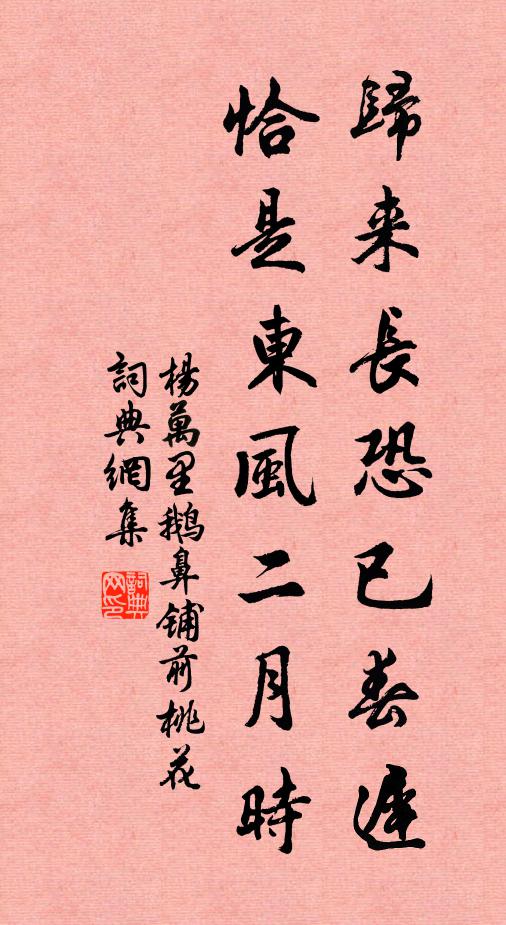 歸来長恐已春遲
恰是東風二月時
楊萬里鵝鼻鋪前桃花
詞典網集
詞典网印